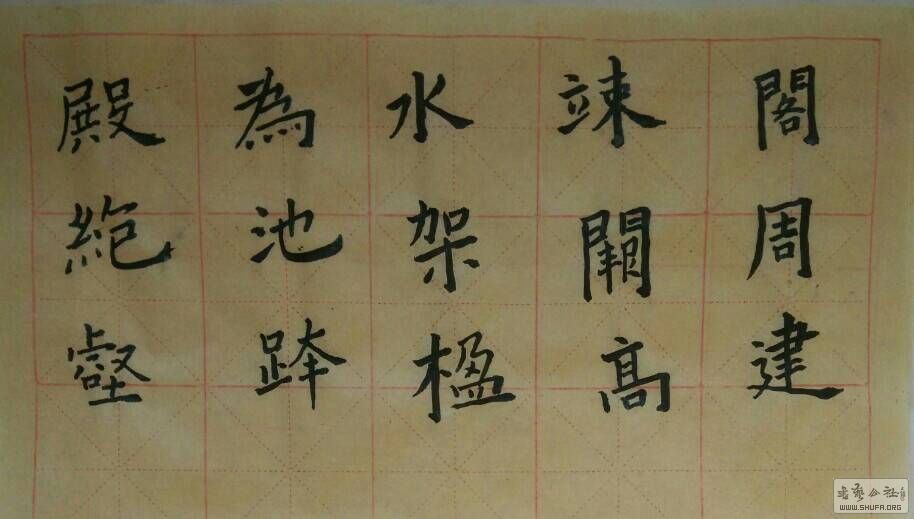 閣周建
竦闕高
水架楹
為池跨
殿絶壑
書藝公社
WWW.SHUFA.ORG